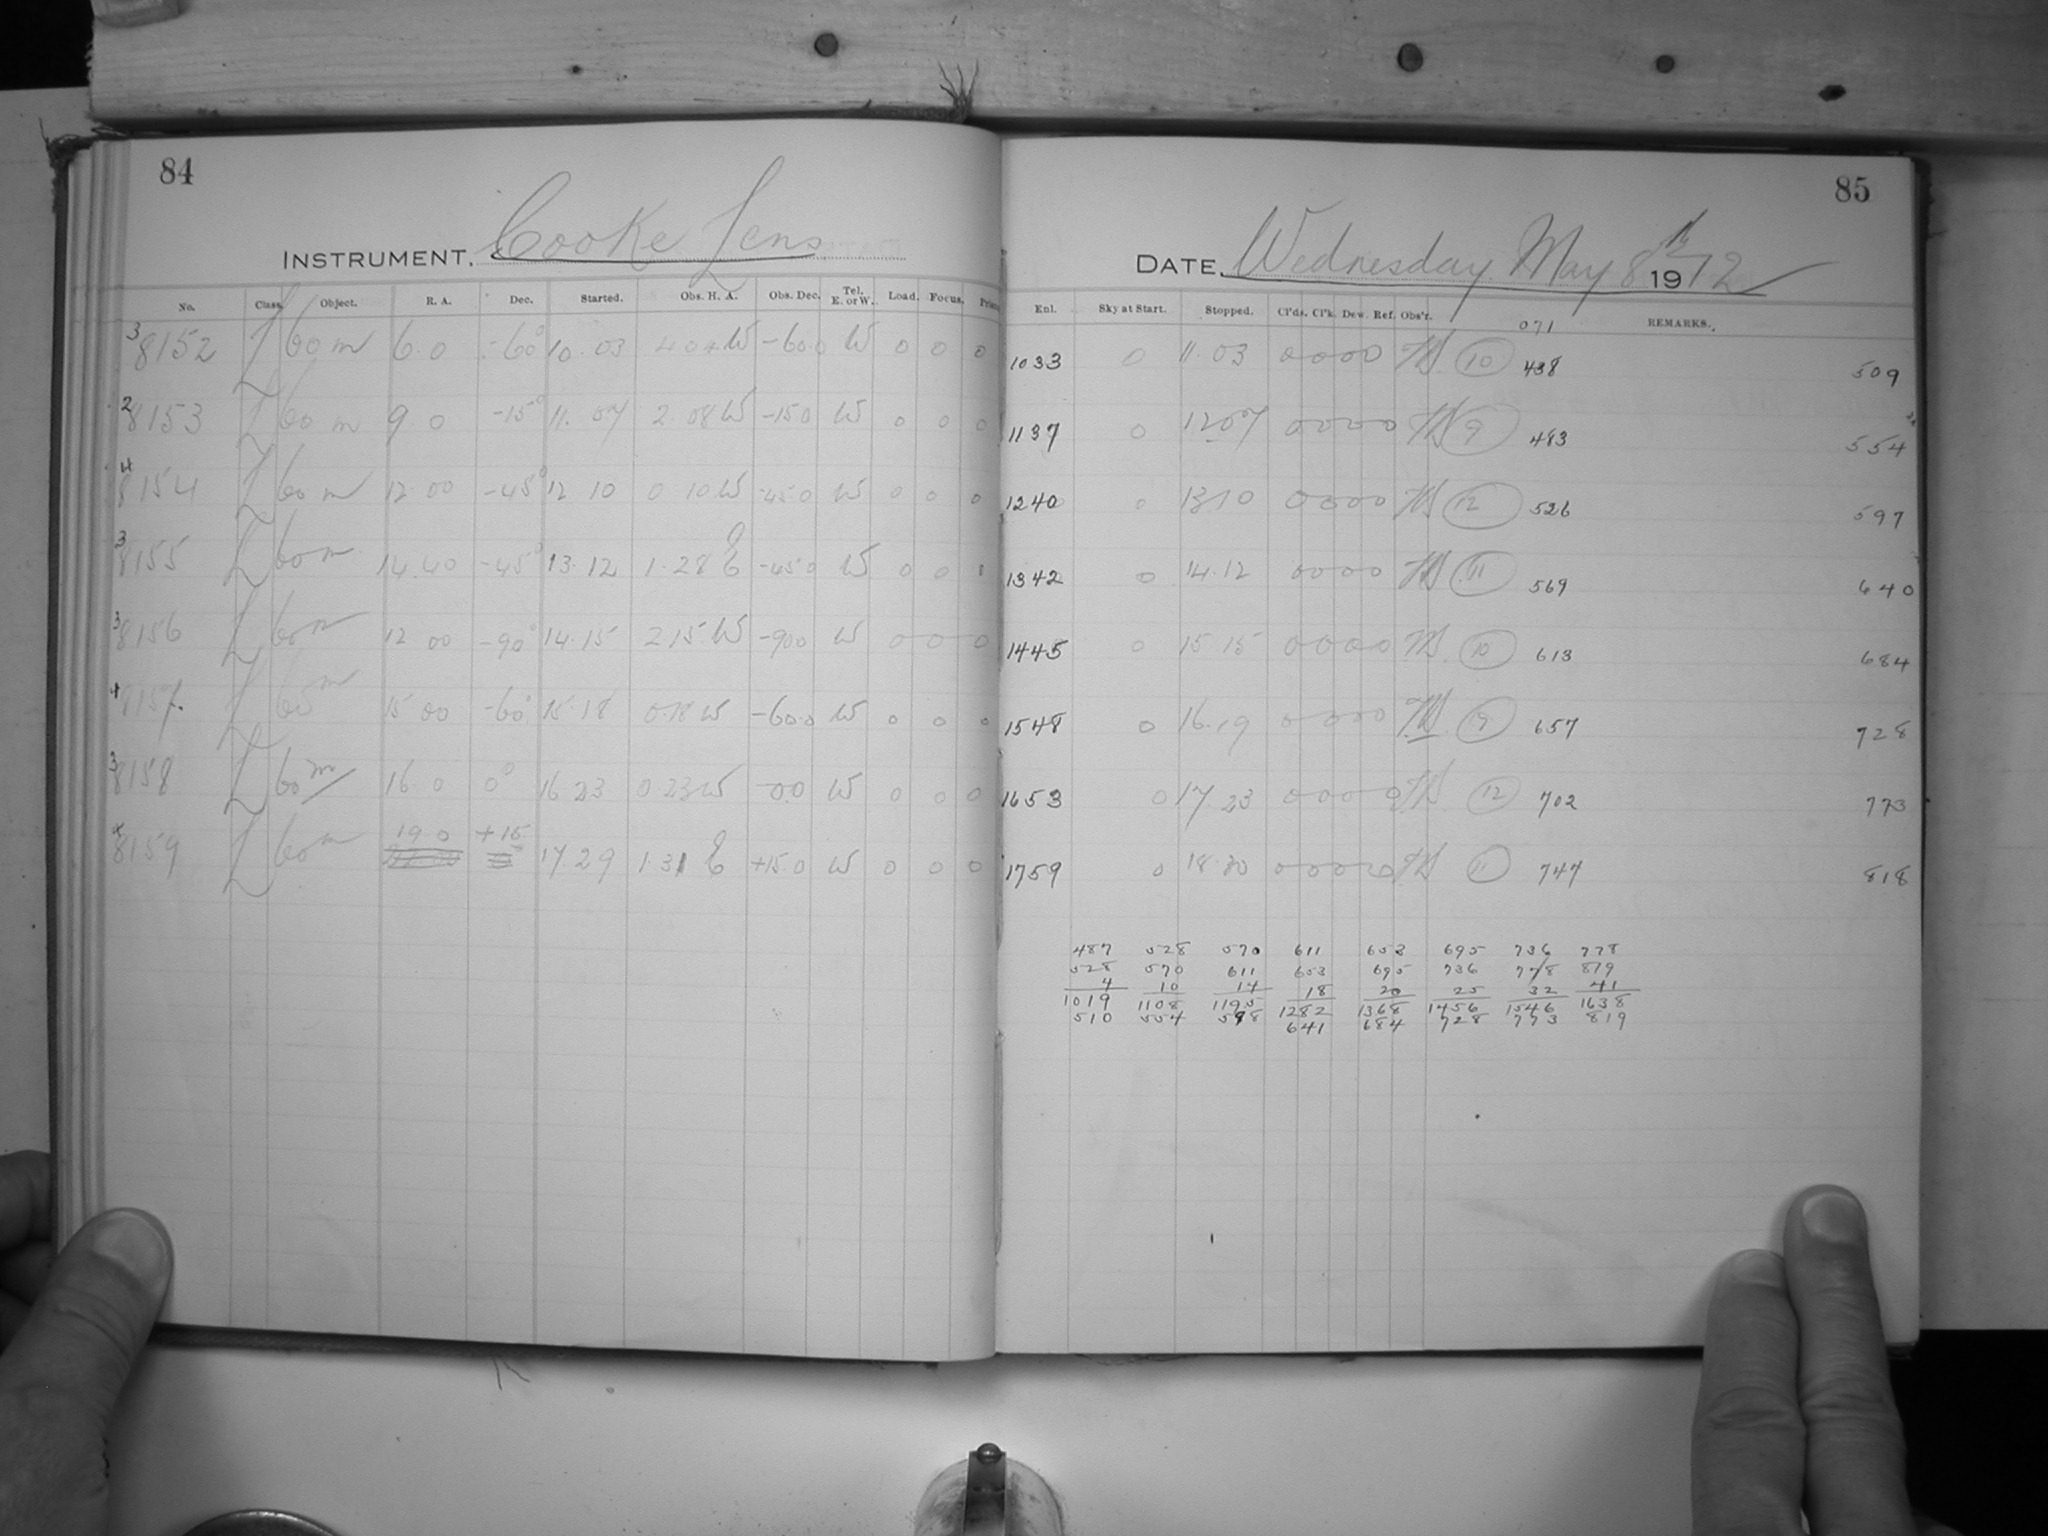 84
INSTRUMENT. Cooke Lens
No. Class. Object. R. A. Dec. Started. Obs. H. A. Obs. Dec. Tel. E. or W. Load. Focus.
3 8152 L 60 m 6.0 -60° 10.03 4.04 W -60.0 W 0 0 0
2 8153 L 60 m 9 0 -15° 11.07 2.08 W -15 0 W 0 0 0
4 8154 L 60 m 12.00 -45° 12 10 0 10 W -45 0 W 0 0 0
3 8155 L 60 m 14.40 -45° 13.12 1.28 E -45 0 W 0 0
3 8156 L 60 m 12 00 -90° 14.15 2 15 W -90 0 W 0 0 0
4 8157 L 60 m 15 00 -60° 15.18 0.18 W -60.0 W 0 0 0
3 8158 L 60 m 16 0 0° 16 23 0.23 W -0.0 W 0 0 0
8159 L 60 m 19 0 +15 17.29 1.31 E +15.0 W 0 0 0
85
DATE. Wednesday May 8th 1912
Enl. Sky at Start. Stopped. Cl'ds. Cl'k. Dew. Ref. Obs'r. REMARKS.
071
1033 0 11.03 0 0 0 0 10 438 509
1137 0 12 07 0 0 0 0 9 483 554
1240 0 13 10 0 0 0 0 12 526 597
1342 0 14.12 0 0 0 0 11 569 640
1445 0 15 15 0 0 0 0 10 613 684
1548 0 16.19 0 0 0 0 9 657 728
1653 0 17.23 0 0 0 0 12 702 773
1759 0 18.30 0 0 0 0 11 747 818
487 528 570 611 653 695 736 778
528 570 611 653 695 736 778 819
4 10 14 18 20 25 32 41
1019 1108 1195 1282 1368 1456 1546 1638
510 554 598 641 684 728 773 819